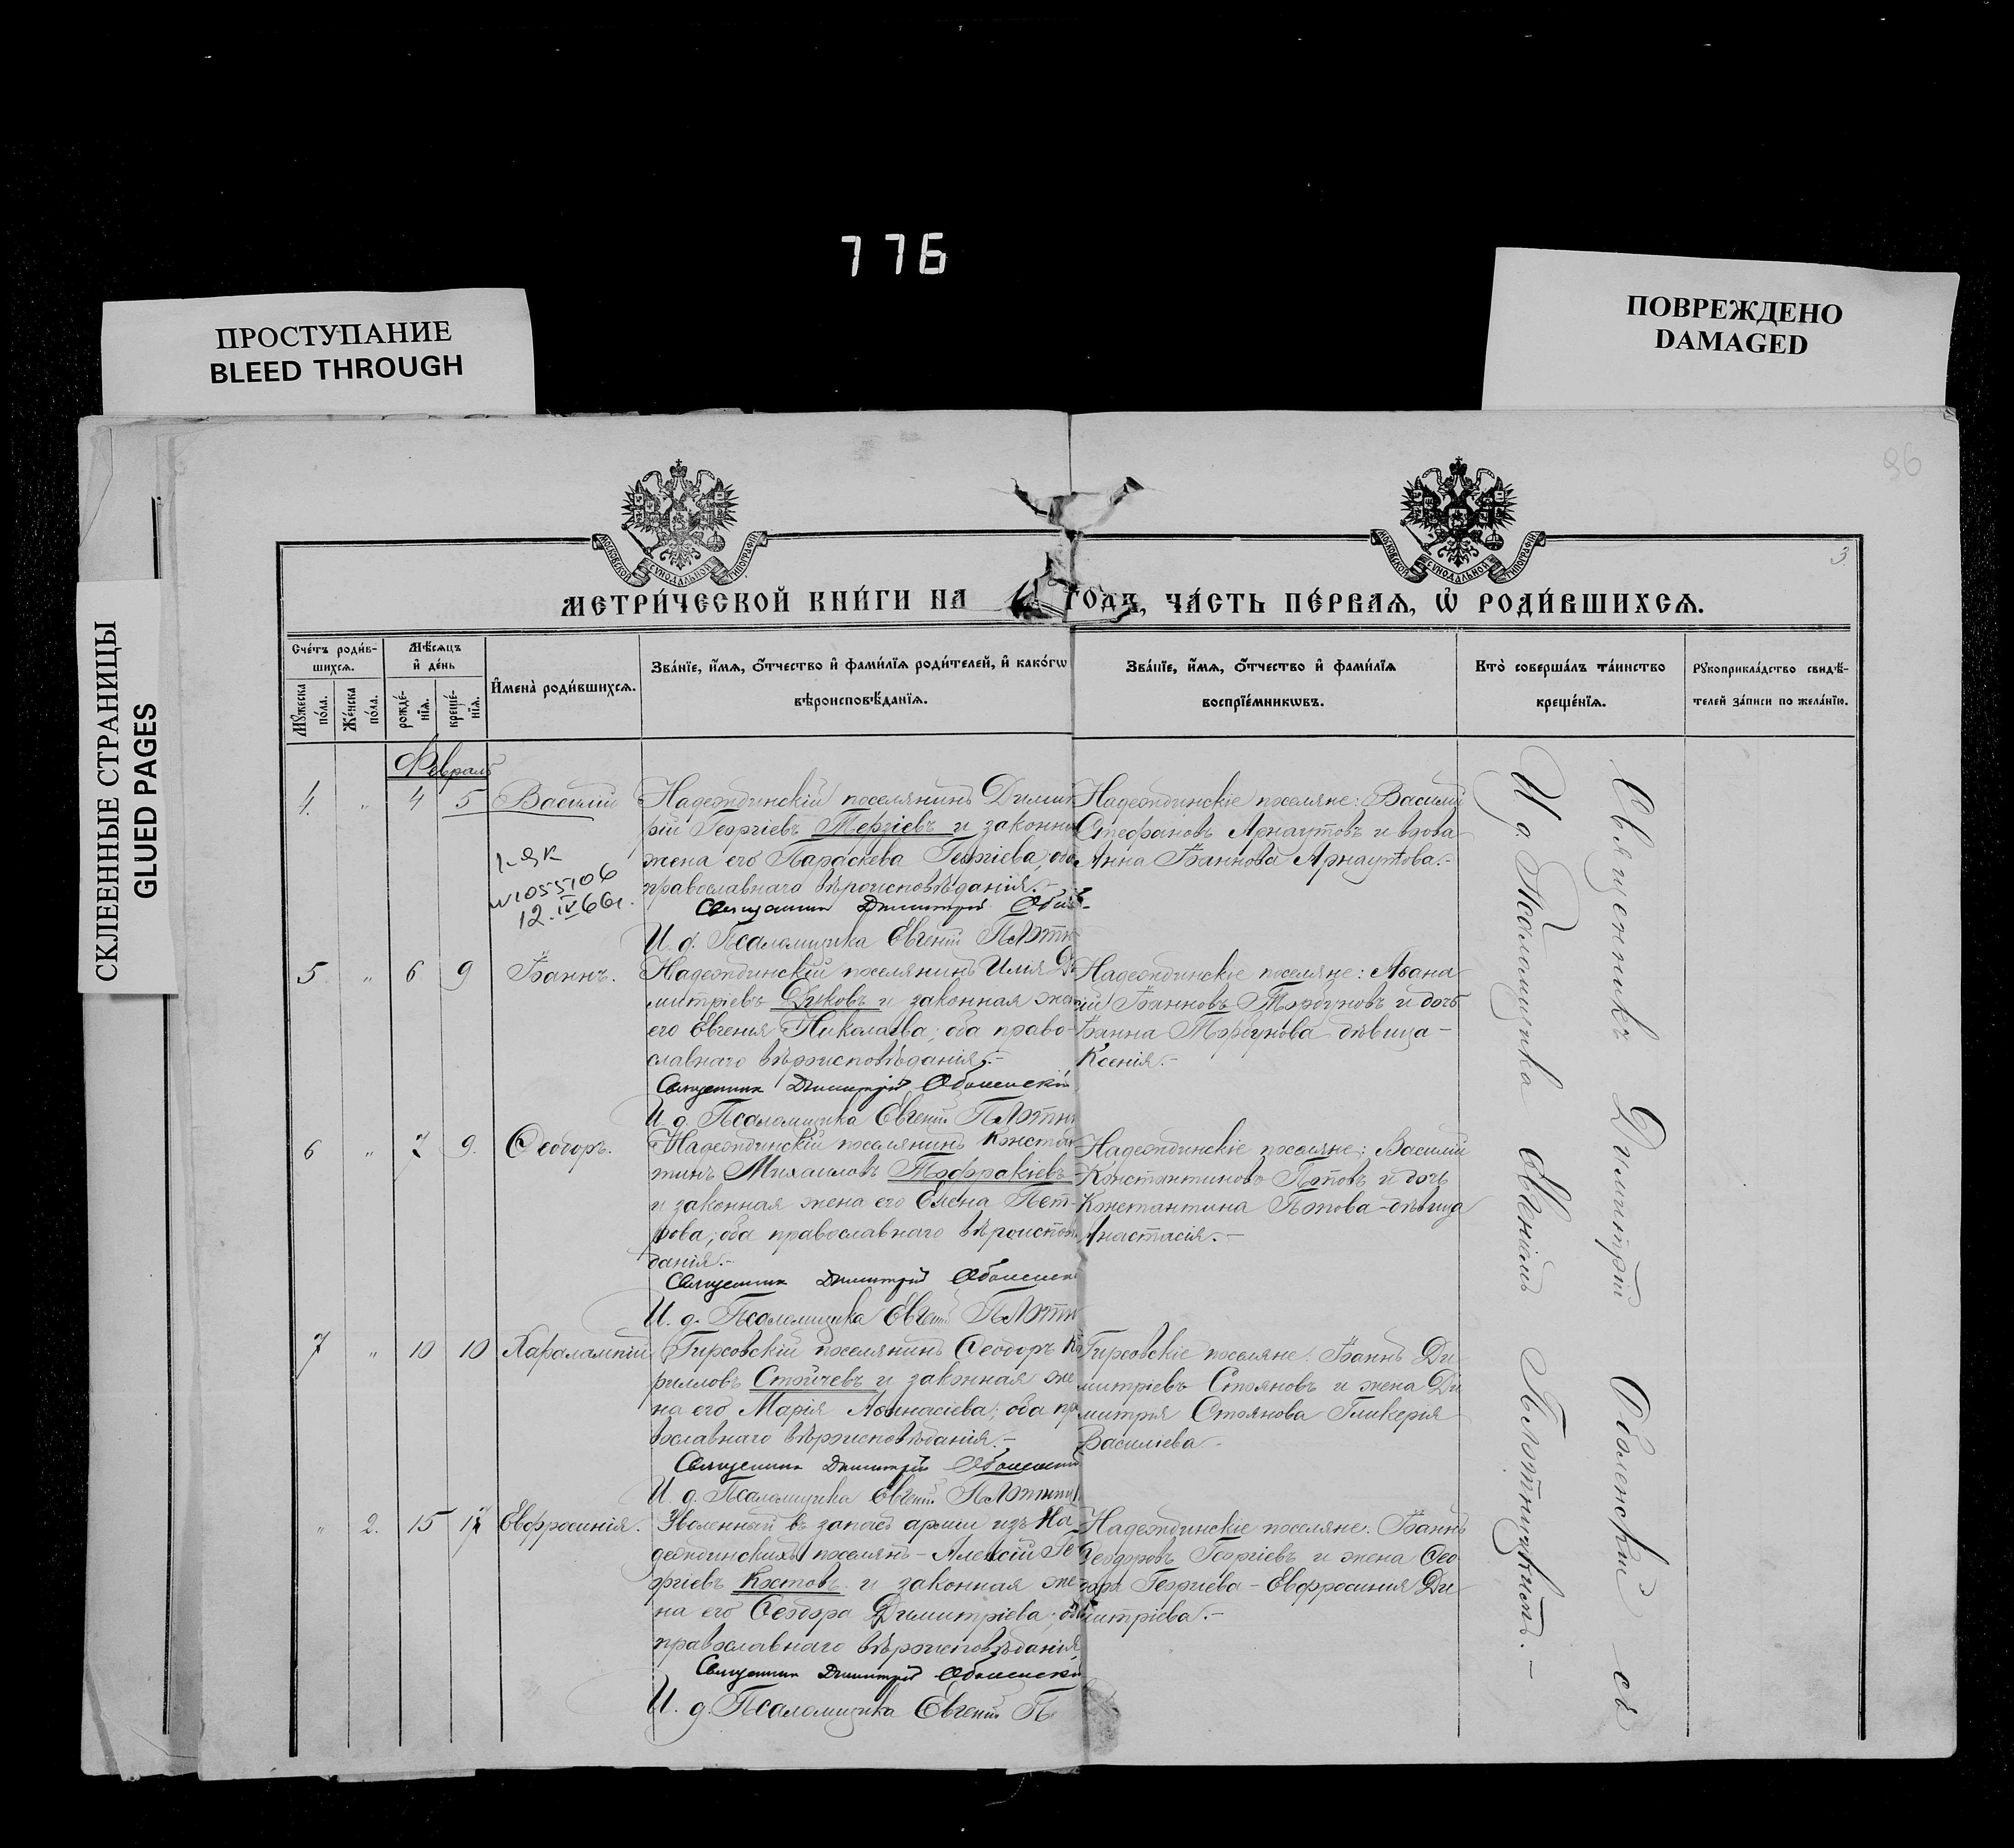 776
ПРОСТУПАНИЕ
BLEED THROUGH
ПОВРЕЖДЕНО
DAMAGED
СКЛЕЕННЫЕ СТРАНИЦЫ
GLUED PAGES
96
3
МОСКОВСКОЙ СѴНОДАЛЬНОЙ ТИПОГРАФІИ
МОСКОВСКОЙ СѴНОДАЛЬНОЙ ТИПОГРАФІИ
МЕТРИ́ЧЕСКОЙ КНИ́ГИ НА ГОДЪ, ЧА́СТЬ ПЕ́РВАѦ, Ѿ РОДИ́ВШИХСѦ.
Сче́тъ роди́в-
шихсѧ.
Мꙋ́жеска по́ла.
Же́нска по́ла.
Мѣ́сѧцъ
и҆ де́нь
рожде́-нїѧ.
креще́-нїѧ.
И҆мена̀ роди́вшихсѧ.
Зва́нїе, и҆́мѧ, о҆́тчество и҆ фами́лїѧ роди́телей, и҆ како́гѡ
вѣроисповѣ́данїѧ.
Зва́нїе, и҆́мѧ, о҆́тчество и҆ фами́лїѧ
воспрїе́мникѡвъ.
Кто̀ соверша́лъ та́инство
креще́нїѧ.
Рꙋкоприкла́дство свидѣ́-
телей за́писи по жела́нїю.
Февраль
4. " 4 5 Василій
Надеждинскій поселянинъ Димит
рій Георгіевъ Терзіевъ и законна
жена его Параскева Георгіева; оба
православнаго вѣроисповѣданія.-
Священникъ Димитрій Обол
И. д. Псаломщика Евгеній Плотн
Надеждинскіе поселяне: Василій
Стефановъ Арнаутовъ и вдова
Анна Іоаннова Арнаутова.-
12.IV 66г.
5. " 6 9 Іоаннъ.
Надеждинскій поселянинъ Илія Ди
митріевъ Дуковъ и законная жен
его Евгенія Николаева; оба право-
славнаго вѣроисповѣданія.-
Священникъ Димитрій Оболенскій
И. д. Псаломщика Евгеній Плотни
Надеждинскіе поселяне: Аѳана
сій Іоанновъ Торбуновъ и дочь
Іоанна Торбунова дѣвица -
Ксенія.-
6 " 7 9. Ѳеодоръ.
Надеждинскій поселянинъ Констан
тинъ Михаиловъ Топракіевъ
и законная жена его Елена Пет-
рова; оба православнаго вѣроисповѣ
данія.-
Священникъ Димитрій Оболенск
И. д. Псаломщика Евгеній Плотн
Надеждинскіе поселяне: Василій
Константиновъ Поповъ и дочь
Константина Попова - дѣвица
Анастасія.-
7 " 10 10 Харалампій
Гирсовскій поселянинъ Ѳеодоръ Ки
рилловъ Стойчевъ и законная же
на его Марія Аѳанасіева; оба пра
вославнаго вѣроисповѣданія.-
Священникъ Димитрій Оболенскій
И. д. Псаломщика Евгеній Плотниц
Гирсовскіе поселяне: Іоаннъ Ди
митріевъ Стояновъ и жена Ди
митрія Стоянова Гликерія
Василіева.-
" 2. 15 17 Евфросинія.
Уволенный въ запасъ арміи изъ На
деждинскихъ поселянъ - Алексій Ге
оргіевъ Костовъ и законная же
на его Ѳеодора Димитріева; оба
православнаго вѣроисповѣданія
Священникъ Димитрій Оболенскій
И. д. Псаломщика Евгеній Пл
Надеждинскіе поселяне: Іоаннъ
Ѳеодоровъ Георгіевъ и жена Ѳео
дора Георгіева - Евфросинія Ди
митріева.-
Священникъ Димитрій Оболенскій съ
И. д. Псаломщика Евгеніемъ Плотницкимъ.-